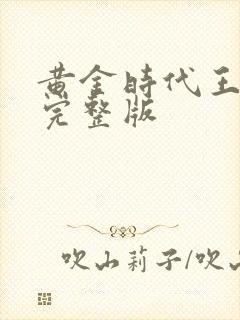 黄金時代王
完整版
吹山莉子/吹山